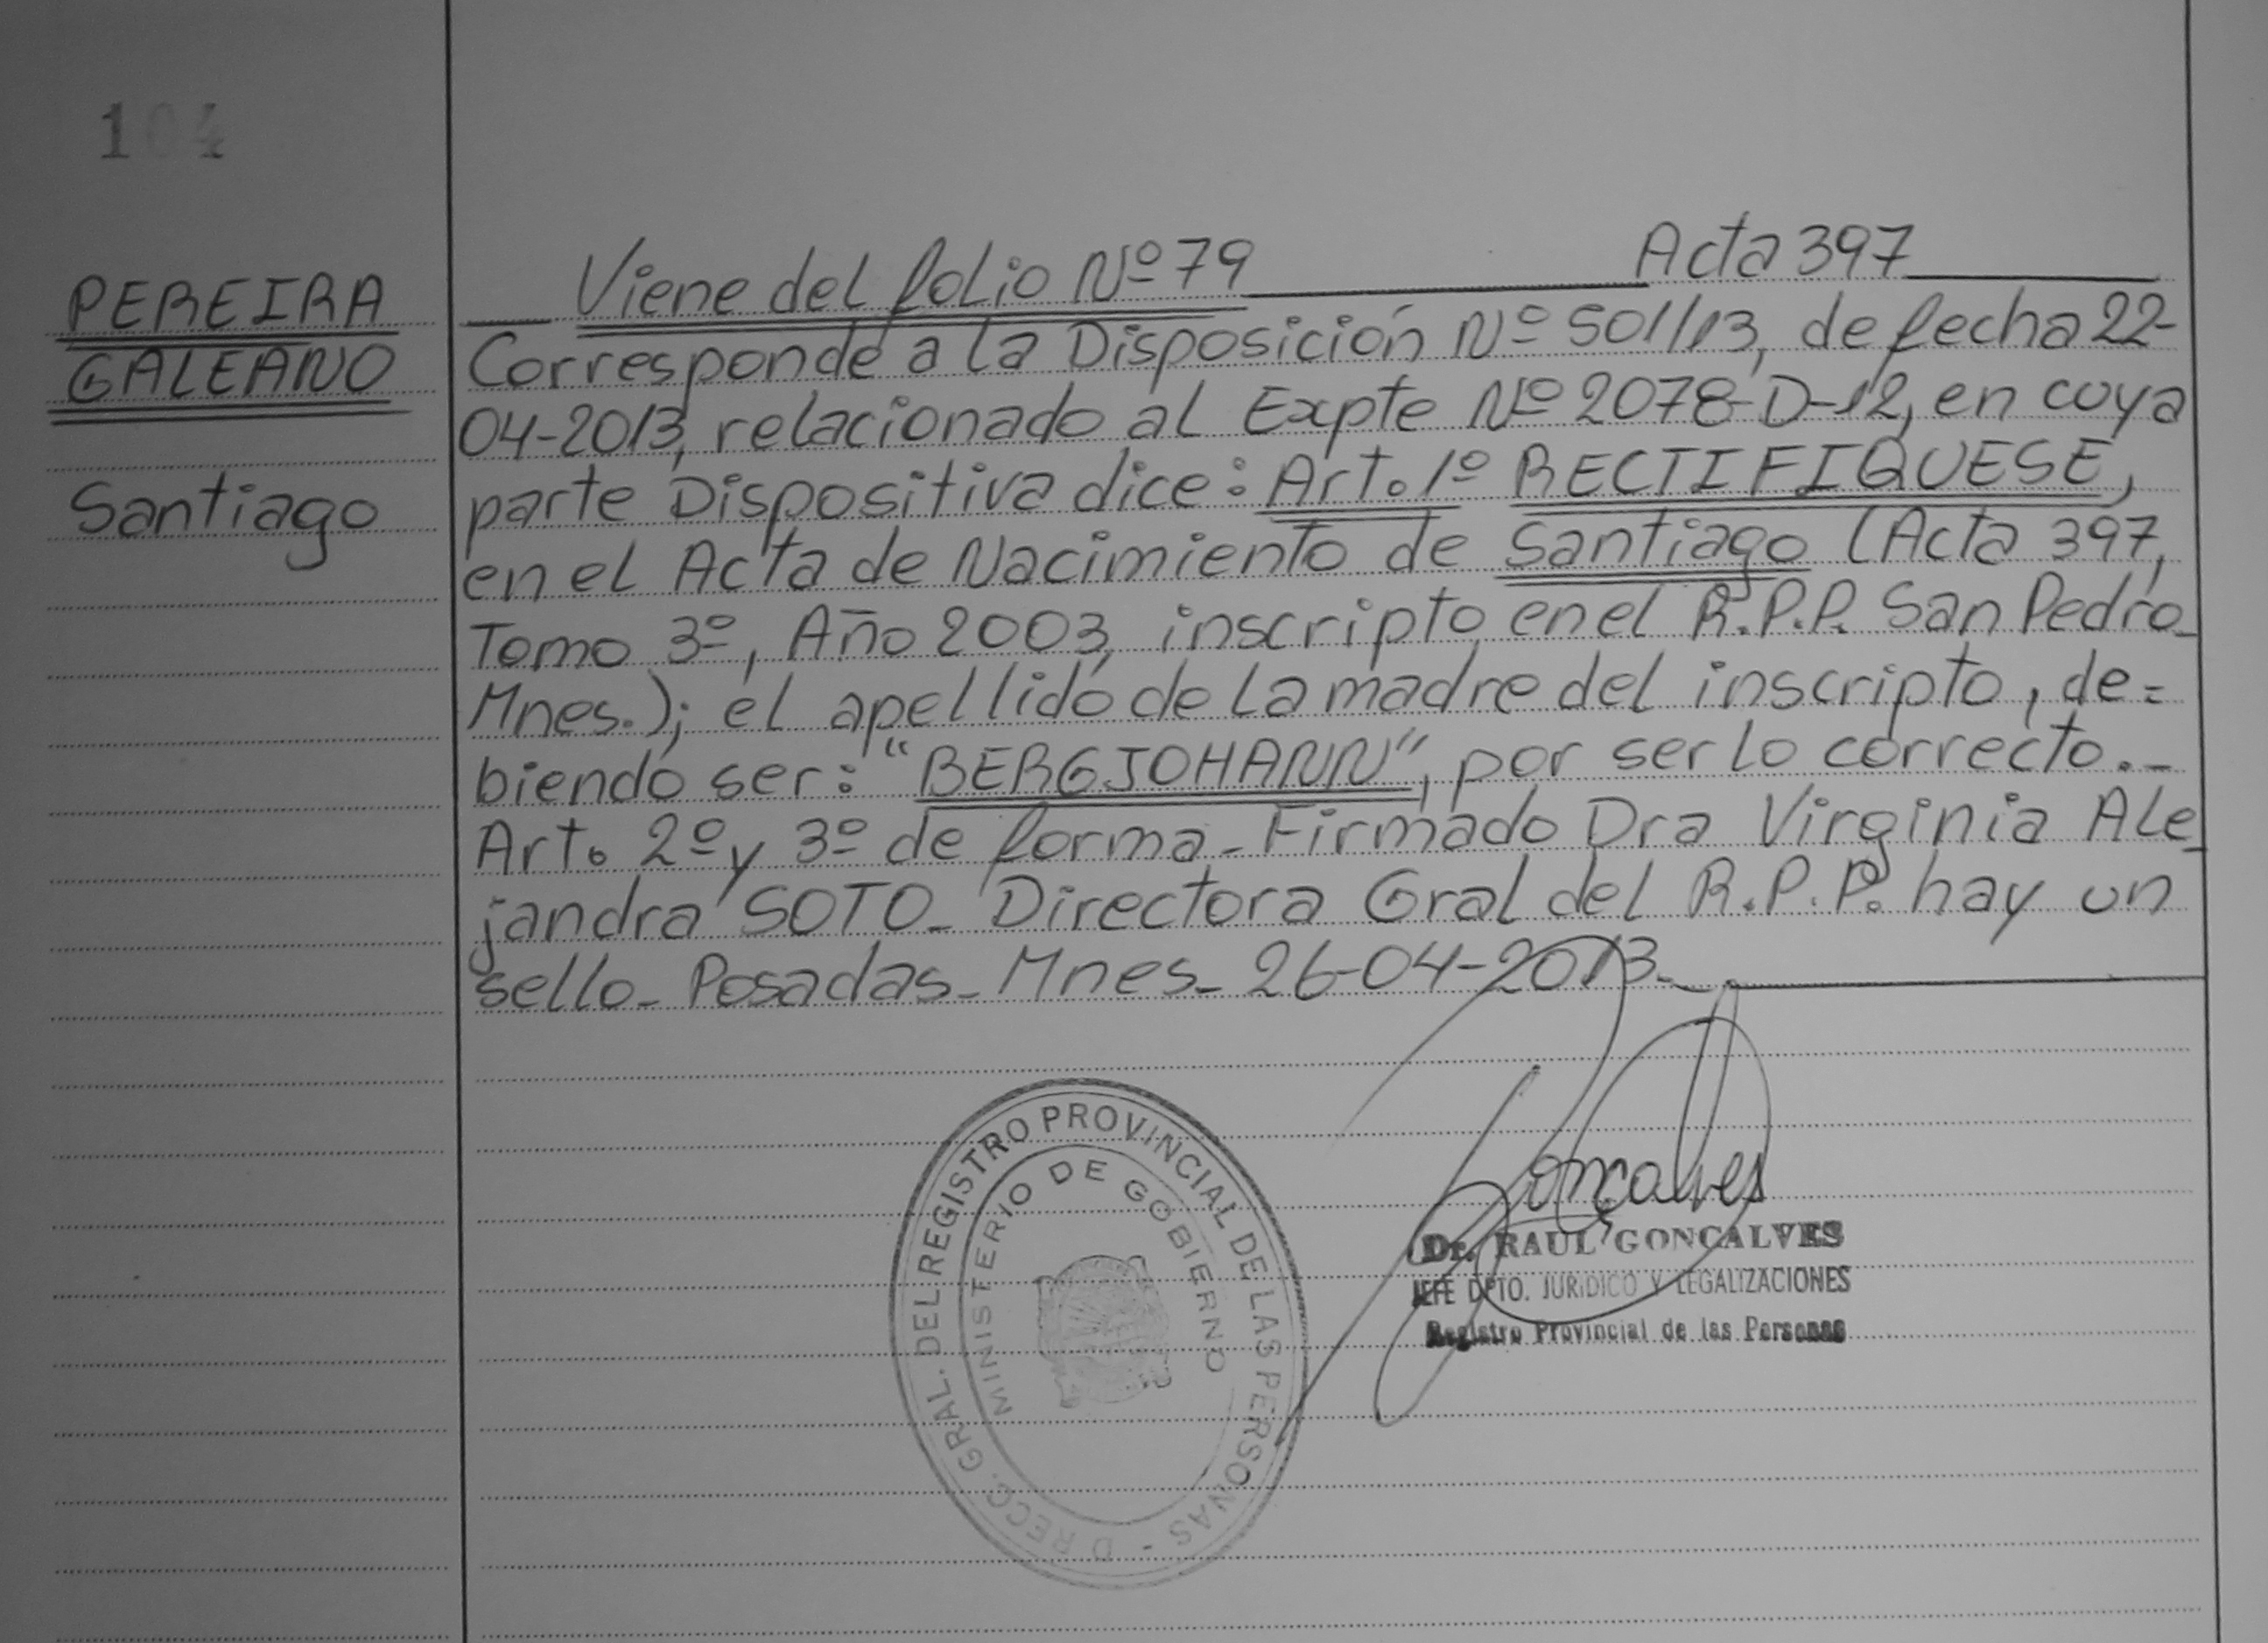 104
PEREIRA
GALEANO
Santiago
Viene del folio Nº 79 Acta 397
Corresponde a la Disposición Nº 501/13, de fecha 22-
04-2013, relacionado al Expte Nº 2078-D-12, en cuya
parte Dispositiva dice: Art. 1º RECTIFIQUESE,
en el Acta de Nacimiento de Santiago (Acta 397,
Tomo 3º, Año 2003, inscripto en el R.P.P. San Pedro_
Mnes.); el apellido de la madre del inscripto, de=
biendo ser: "BERGJOHANN", por ser lo correcto._
Art. 2º y 3º de forma_ Firmado Dra Virginia Ale_
jandra SOTO_ Directora Gral del R.P.P. hay un
sello_ Posadas_ Mnes_ 26-04-2013_
DIRECC. GRAL. DEL REGISTRO PROVINCIAL DE LAS PERSONAS -
MINISTERIO DE GOBIERNO
Goncalves
Dr. RAUL GONCALVES
JEFE DPTO. JURIDICO Y LEGALIZACIONES
Registro Provincial de las Personas